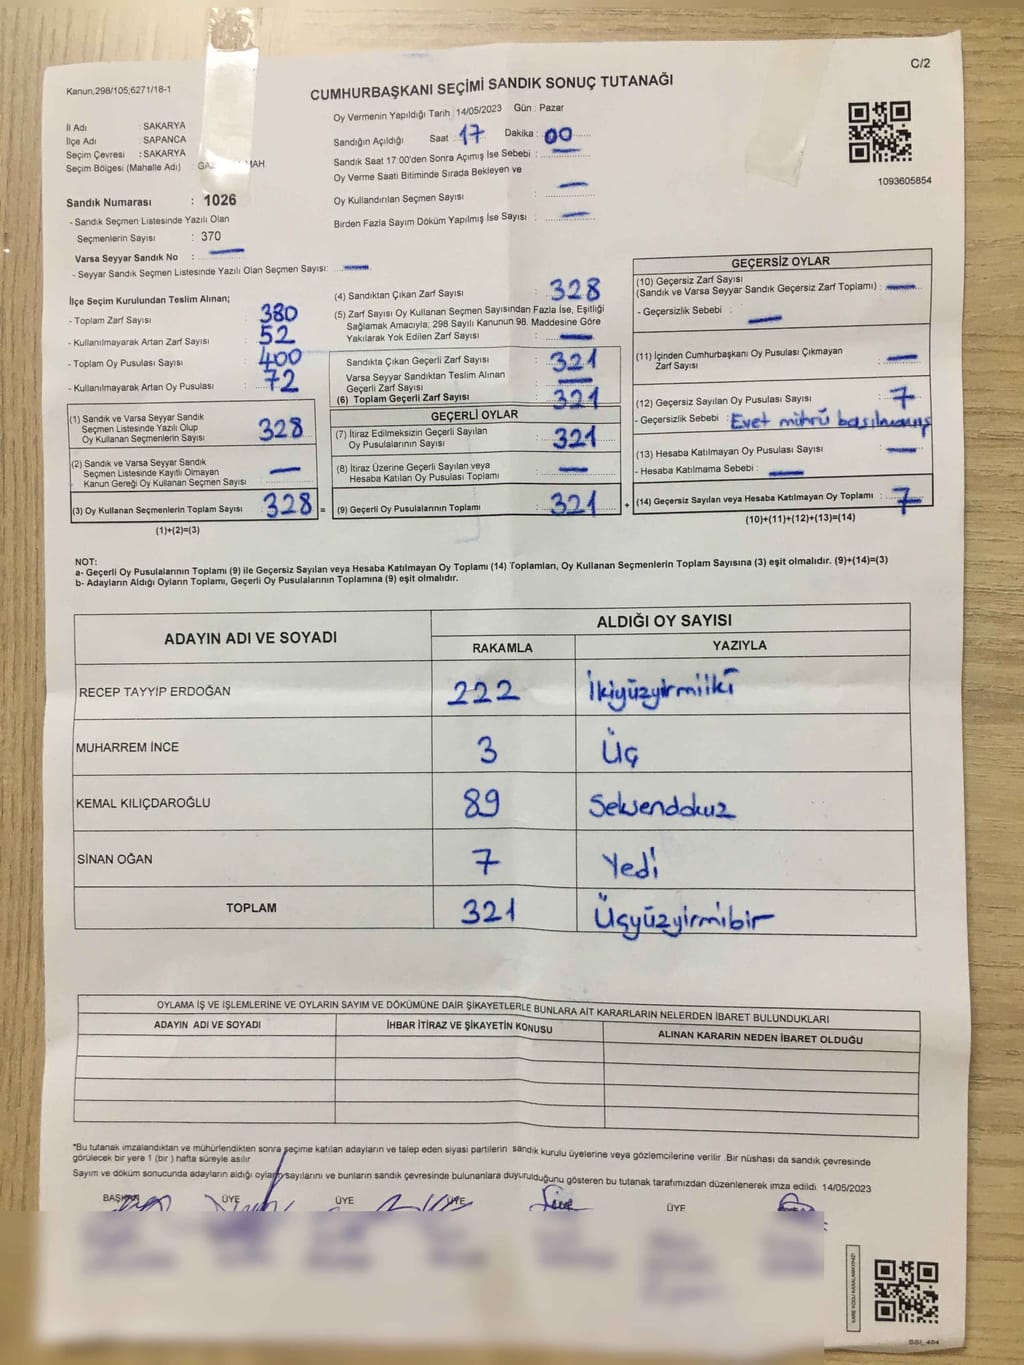 C/2
Kanun,298/105;6271/18-1
CUMHURBAŞKANI SEÇİMİ SANDIK SONUÇ TUTANAĞI
Oy Vermenin Yapıldığı Tarih 14/05/2023 Gün : Pazar
İl Adı : SAKARYA
İlçe Adı : SAPANCA
Seçim Çevresi : SAKARYA
Seçim Bölgesi (Mahalle Adı) : MAH
Sandığın Açıldığı Saat 17 Dakika : 00
Sandık Saat 17:00'den Sonra Açımış İse Sebebi : —
Oy Verme Saati Bitiminde Sırada Bekleyen ve
Oy Kullandırılan Seçmen Sayısı : —
Birden Fazla Sayım Döküm Yapılmış İse Sayısı : —
1093605854
Sandık Numarası : 1026
- Sandık Seçmen Listesinde Yazılı Olan
Seçmenlerin Sayısı : 370
Varsa Seyyar Sandık No : —
- Seyyar Sandık Seçmen Listesinde Yazılı Olan Seçmen Sayısı: —
İlçe Seçim Kurulundan Teslim Alınan;
- Toplam Zarf Sayısı : 380
- Kullanılmayarak Artan Zarf Sayısı : 52
- Toplam Oy Pusulası Sayısı : 400
- Kullanılmayarak Artan Oy Pusulası : 72
(1) Sandık ve Varsa Seyyar Sandık
Seçmen Listesinde Yazılı Olup
Oy Kullanan Seçmenlerin Sayısı : 328
(2) Sandık ve Varsa Seyyar Sandık
Seçmen Listesinde Kayıtlı Olmayan
Kanun Gereği Oy Kullanan Seçmen Sayısı : —
(3) Oy Kullanan Seçmenlerin Toplam Sayısı : 328 =
(1)+(2)=(3)
(4) Sandıktan Çıkan Zarf Sayısı : 328
(5) Zarf Sayısı Oy Kullanan Seçmen Sayısından Fazla İse, Eşitliği
Sağlamak Amacıyla; 298 Sayılı Kanunun 98. Maddesine Göre
Yakılarak Yok Edilen Zarf Sayısı : —
Sandıkta Çıkan Geçerli Zarf Sayısı : 321
Varsa Seyyar Sandıktan Teslim Alınan
Geçerli Zarf Sayısı : —
(6) Toplam Geçerli Zarf Sayısı : 321
GEÇERLİ OYLAR
(7) İtiraz Edilmeksizin Geçerli Sayılan
Oy Pusulalarının Sayısı : 321
(8) İtiraz Üzerine Geçerli Sayılan veya
Hesaba Katılan Oy Pusulası Toplamı : —
(9) Geçerli Oy Pusulalarının Toplamı : 321 +
GEÇERSİZ OYLAR
(10) Geçersiz Zarf Sayısı
(Sandık ve Varsa Seyyar Sandık Geçersiz Zarf Toplamı) : —
- Geçersizlik Sebebi : —
(11) İçinden Cumhurbaşkanı Oy Pusulası Çıkmayan
Zarf Sayısı : —
(12) Geçersiz Sayılan Oy Pusulası Sayısı : 7
- Geçersizlik Sebebi : Evet mührü basılmamış
(13) Hesaba Katılmayan Oy Pusulası Sayısı : —
- Hesaba Katılmama Sebebi : —
(14) Geçersiz Sayılan veya Hesaba Katılmayan Oy Toplamı : 7
(10)+(11)+(12)+(13)=(14)
NOT:
a- Geçerli Oy Pusulalarının Toplamı (9) ile Geçersiz Sayılan veya Hesaba Katılmayan Oy Toplamı (14) Toplamları, Oy Kullanan Seçmenlerin Toplam Sayısına (3) eşit olmalıdır. (9)+(14)=(3)
b- Adayların Aldığı Oyların Toplamı, Geçerli Oy Pusulalarının Toplamına (9) eşit olmalıdır.
ADAYIN ADI VE SOYADI
ALDIĞI OY SAYISI
RAKAMLA YAZIYLA
RECEP TAYYİP ERDOĞAN 222 İkiyüzyirmiiki
MUHARREM İNCE 3 Üç
KEMAL KILIÇDAROĞLU 89 Seksendokuz
SİNAN OĞAN 7 Yedi
TOPLAM 321 Üçyüzyirmibir
OYLAMA İŞ VE İŞLEMLERİNE VE OYLARIN SAYIM VE DÖKÜMÜNE DAİR ŞİKAYETLERLE BUNLARA AİT KARARLARIN NELERDEN İBARET BULUNDUKLARI
ADAYIN ADI VE SOYADI İHBAR İTİRAZ VE ŞİKAYETİN KONUSU ALINAN KARARIN NEDEN İBARET OLDUĞU
*Bu tutanak imzalandıktan ve mühürlendikten sonra seçime katılan adayların ve talep eden siyasi partilerin sandık kurulu üyelerine veya gözlemcilerine verilir .Bir nüshası da sandık çevresinde
görülecek bir yere 1 (bir ) hafta süreyle asılır
Sayım ve döküm sonucunda adayların aldığı oyların sayılarını ve bunların sandık çevresinde bulunanlara duyurulduğunu gösteren bu tutanak tarafımızdan düzenlenerek imza edildi. 14/05/2023
BAŞKAN ÜYE ÜYE ÜYE ÜYE